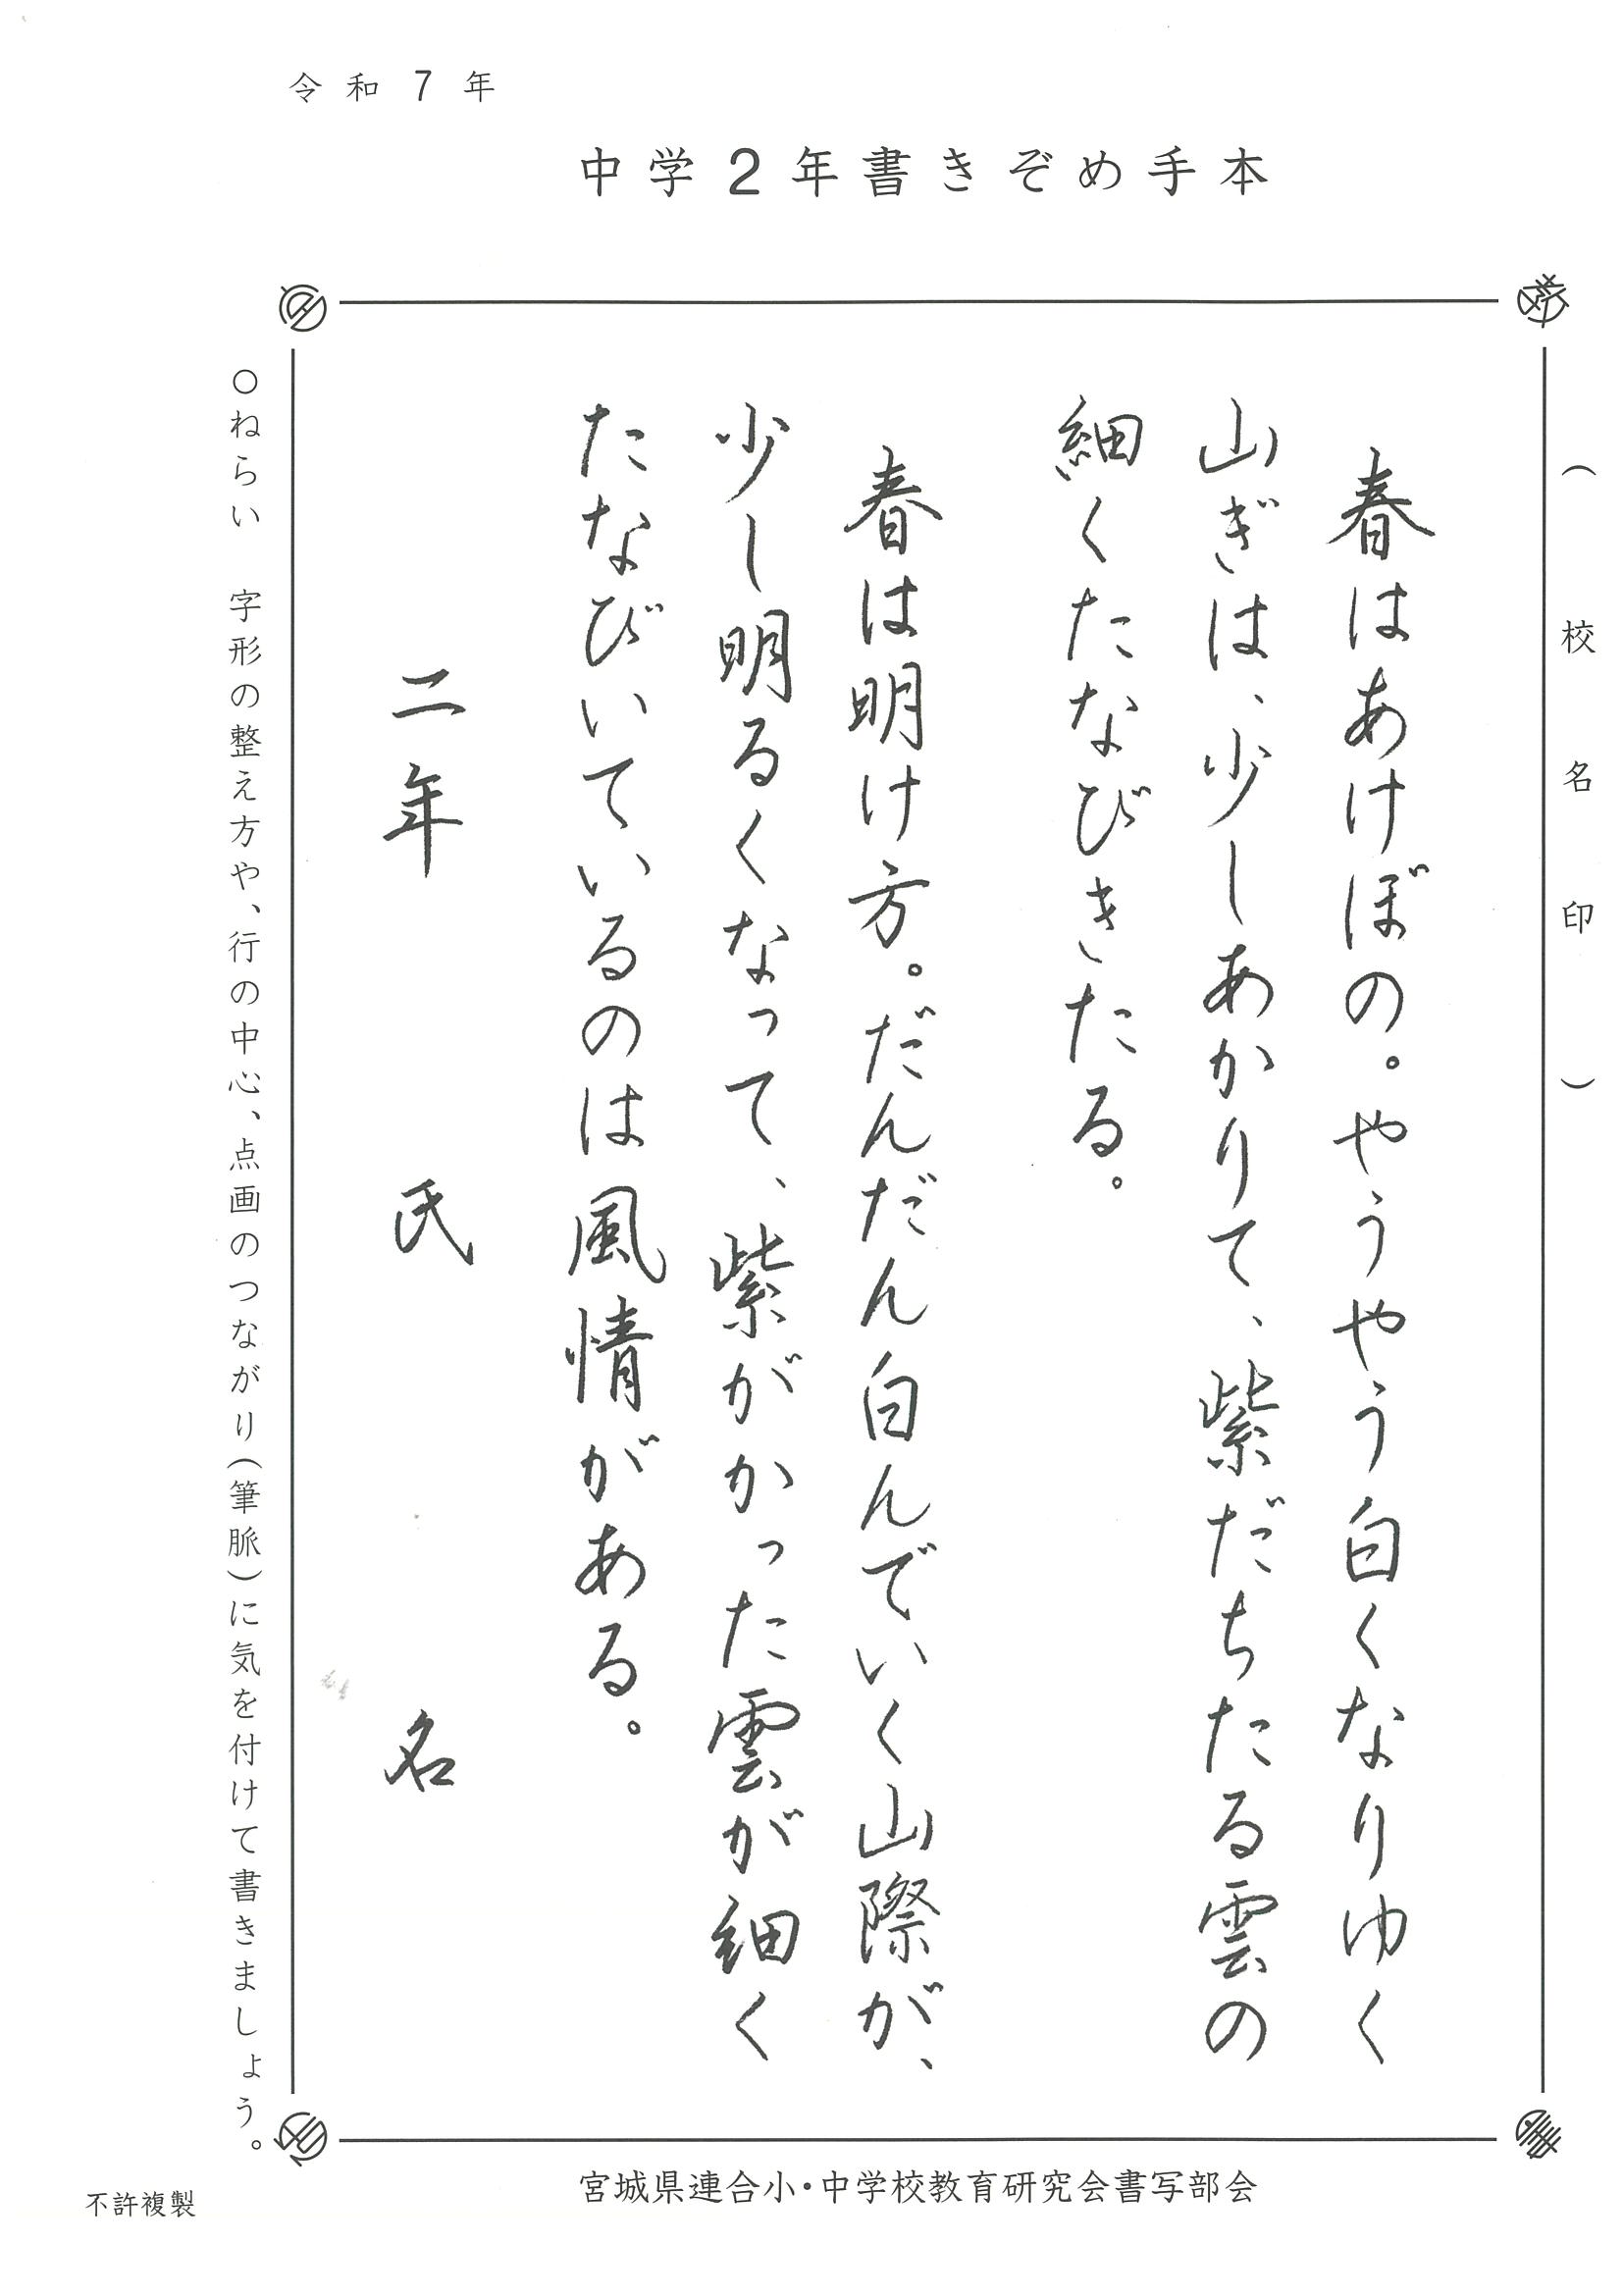 令和7年
中学2年書きぞめ手本
（校名印）
春はあけぼの。やうやう白くなりゆく
山ぎは、少しあかりて、紫だちたる雲の
細くたなびきたる。
春は明け方。だんだん白んでいく山際が、
少し明るくなって、紫がかった雲が細く
たなびいているのは風情がある。
二年 氏名
○ねらい 字形の整え方や、行の中心、点画のつながり(筆脈)に気を付けて書きましょう。
宮城県連合小・中学校教育研究会書写部会
不許複製